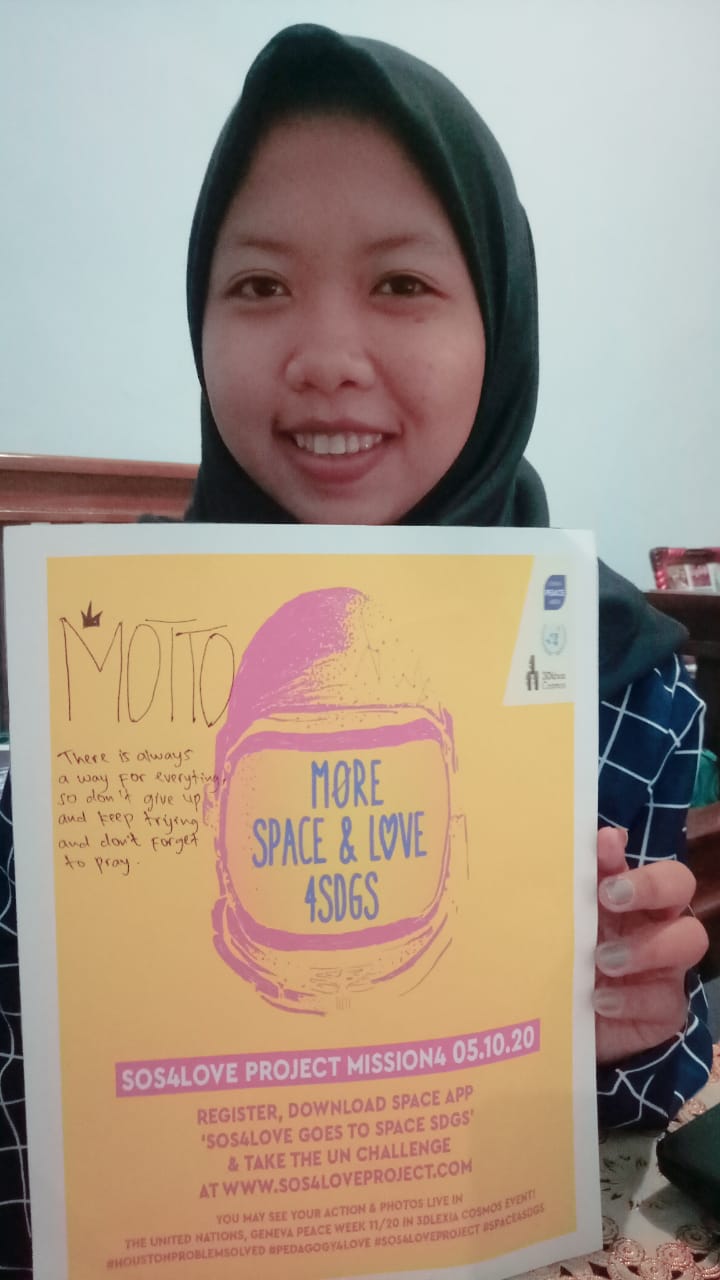 MOTTO
There is always
a way for everyting,
so don't give up
and keep trying
and don't forget
to pray.
PEACE
3Dlexia
Cosmos
MØRE
SPACE & LOVE
4SDGS
SOS4LOVE PROJECT MISSION4 05.10.20
REGISTER, DOWNLOAD SPACE APP
'SOS4LOVE GOES TO SPACE SDGS'
& TAKE THE UN CHALLENGE
AT WWW.SOS4LOVEPROJECT.COM
YOU MAY SEE YOUR ACTION & PHOTOS LIVE IN
THE UNITED NATIONS, GENEVA PEACE WEEK 11/20 IN 3DLEXIA COSMOS EVENT!
#HOUSTONPROBLEMSOLVED #PEDAGOGY4LOVE #SOS4LOVEPROJECT #SPACE4SDGS